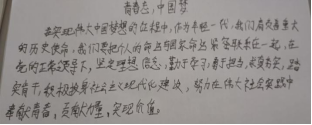 青春志，中国梦
在实现伟大中国梦想的过程中，作为年轻一代，我们肩负着重大
的历史使命，我们要把个人的命运与国家命运紧紧联系在一起，在
党的正确领导下，坚定理想信念，勤于学习，勇于担当，求真务实，踏
实肯干，积极投身社会主义现代化建设，努力在伟大社会实践中
奉献青春，贡献力量，实现价值。